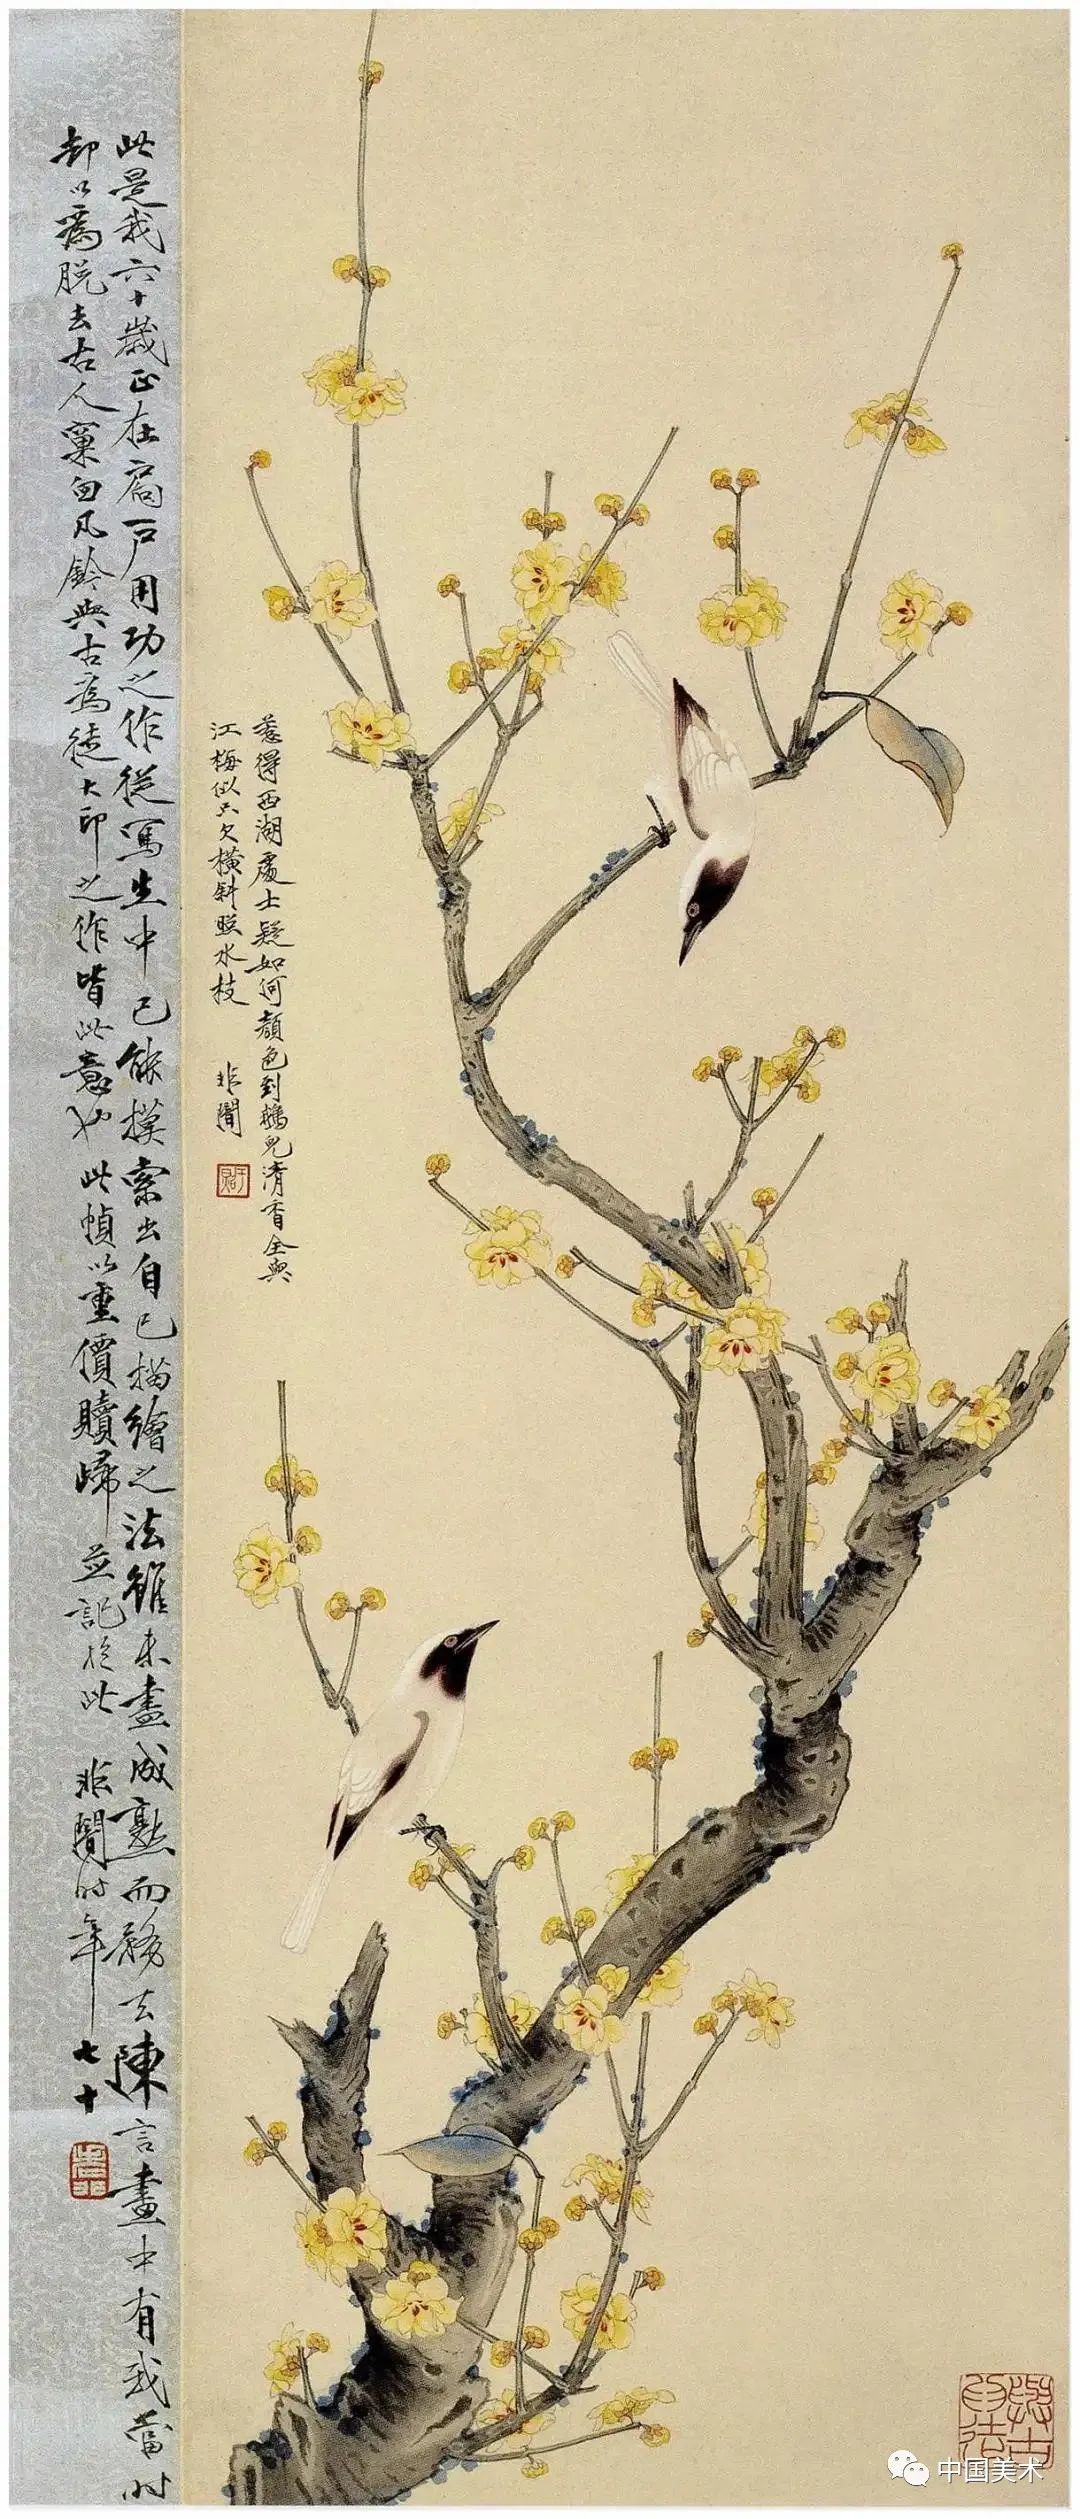 惹得西湖處士疑如何顏色到鵝兒清香全與
江梅似只欠橫斜照水枝 非闇
此是我六十歲正在扃户用功之作從寫生中已能摸索出自己描繪之法雖未盡成熟而務去陳言畫中有我當時
却以為脱去古人窠臼凡鈐與古為徒大印之作皆此意也此幀以重價贖歸並記於此 非闇時年七十
中国美术